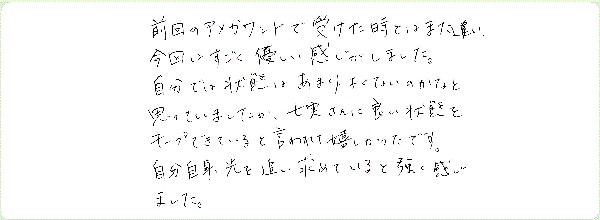 前回のアメガウンドで受けた時とはまた違い、
今回はすごく優しい感じがしました。
自分では状態はあまりよくないのかなと
思っていましたが、七実さんに良い状態を
キープできていると言われて嬉しかったです。
自分自身、光を追い求めていると強く感じ
ました。